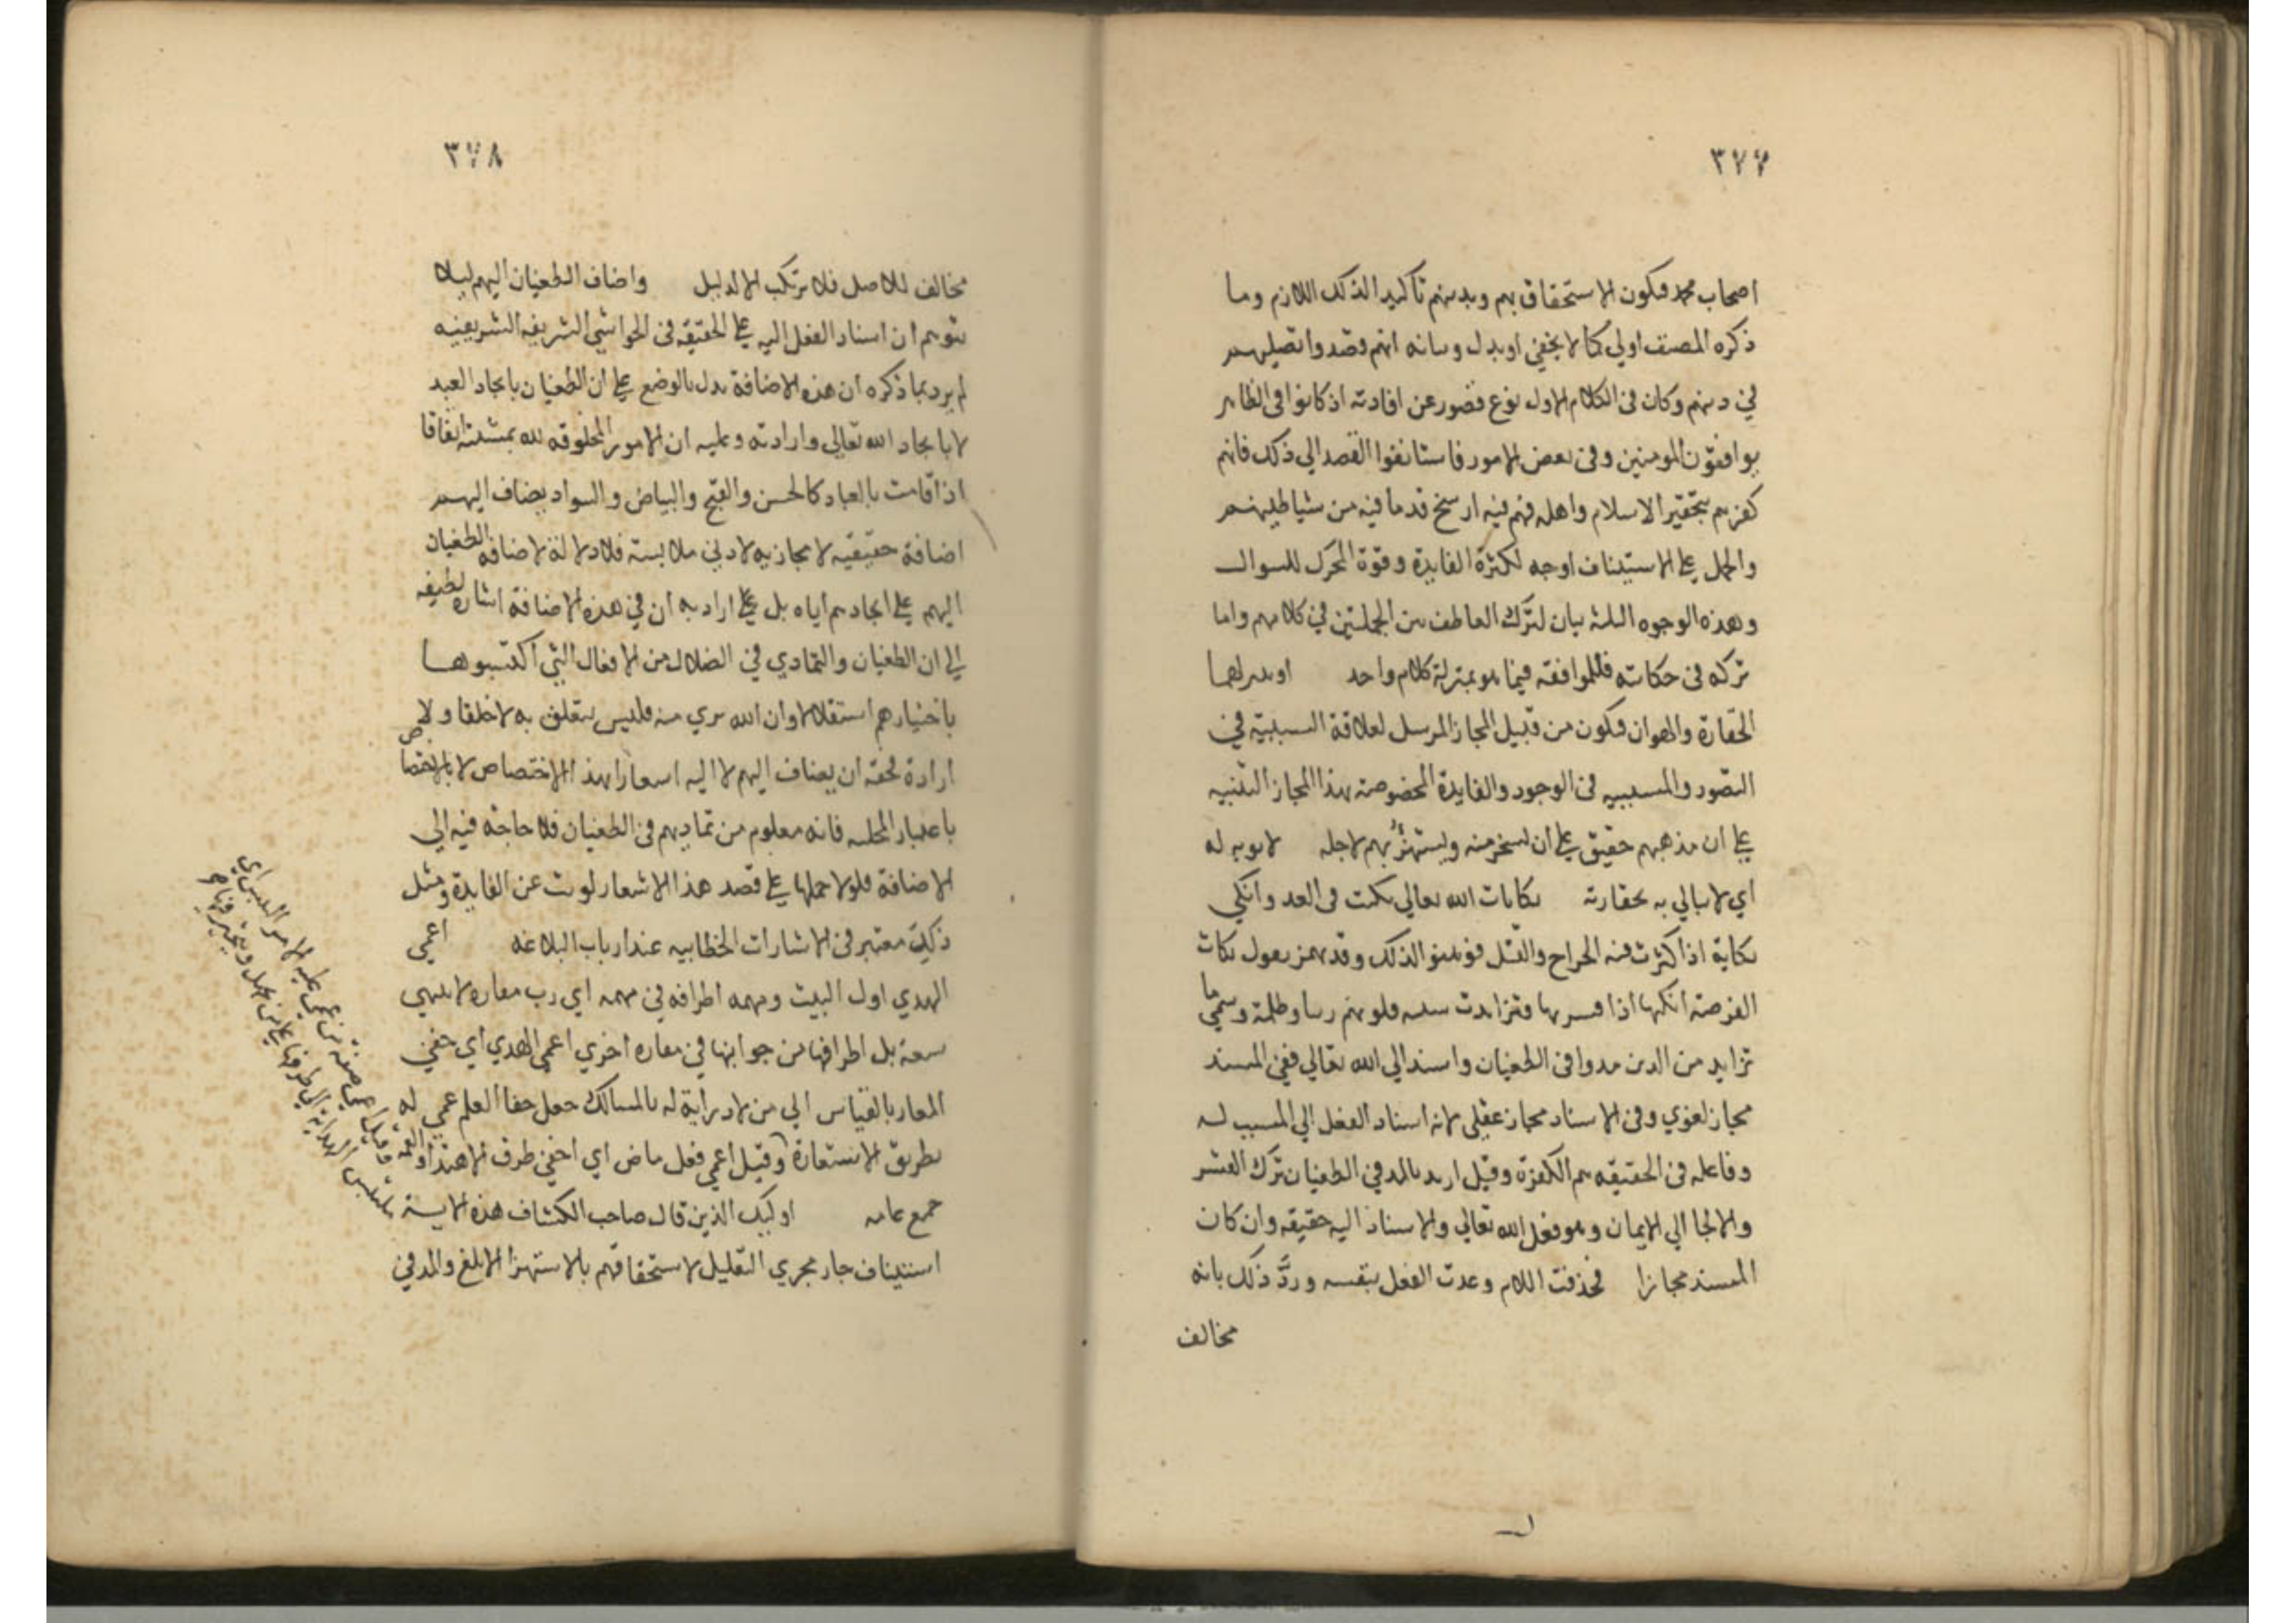 ٣٧٧
اصحاب محمد فيكون الاستحقاق بهم وبدينهم تأكيدا لذلك اللازم وما
ذكره المصنف اولي كما لا يخفي او بدل وبيانه انهم قصدوا تصليبهم
في دينهم وكان في الكلام الاول نوع قصور عن افادته اذ كانوا في الظاهر
يوافقون المومنين وفي بعض الامور فاستانفوا القصد الي ذلك فانهم
كفرهم بتحقير الاسلام واهله فهم فيه ارسخ قدما فيه من شياطينهم
والحمل علي الاستيناف اوجه لكثرة الفايدة وقوة المحرك للسوال
وهذه الوجوه الثلثة بيان لترك العاطف بين الجملتين في كلامهم واما
تركه في حكاته فللموافقه فيما هو بمنزلة كلام واحد او يدلهما
الحقارة والهوان فيكون من قبيل المجاز المرسل لعلاقة السببية في
التصور والمسببيه في الوجود والفايدة المخصوصة بهذا المجاز التنبيه
علي ان مذهبهم حقيق علي ان يسخر منه ويستهزئ بهم لاجله لا يوبه له
اي لا يبالي به بحقارته نكايات الله تعالي نكيت في العد وانكي
نكاية اذا كثرت فيه الجراح والقتل فوهنوا لذلك وقد يهمز يقول نكات
القرحة انكاها اذا قسرتها فتزايدت بسببه قلوبهم رينا وظلمة وسمي ما
تزايد من الدين مدوا في الطغيان واسند الي الله تعالي ففي المسند
مجاز لغوي وفي الاسناد مجاز عقلي لانه اسناد الفعل الي المسبب له
وفاعله في الحقيقه هم الكفرة وقيل اريد بالمد في الطغيان ترك القسر
والالجا الي الايمان وهو فعل الله تعالي والاسناد اليه حقيقه وان كان
المسند مجازا فحذفت اللام وعدت الفعل بنفسه وردّ ذلك بانه
مخالف
٣٧٨
مخالف للاصل فلا يرتكب الا لدليل واضاف الطغيان اليهم ليلا
يتوهم ان اسناد الفعل اليه علي الحقيقه في الحواشي الشريفه الشريفيه
لم يرد بما ذكره ان هذه الاضافة يدل بالوضع علي ان الطغيان بايجاد العبد
لا بايجاد الله تعالي وارادته وعليه ان الامور المخلوقه لله بمشيته اتفاقا
اذا قامت بالعباد كالحسن والقبح والبياض والسواد يضاف اليهم
اضافة حقيقيه لا مجازيه لادني ملابسته فلا دلالة لاضافه الطغيان
اليهم علي ايجادهم اياه بل علي اراد به ان في هذه الاضافة اشاره لطيفه
الي ان الطغيان والتمادي في الضلال من الافعال التي اكتسبوها
باختيارهم استقلالا وان الله بري منه فليس يتعلق به لا خلقا ولا
ارادة لحقه ان يضاف اليهم لا اليه اسعارا بهذا الاختصاص لا بالاختصاص
باعتبار المحليه فانه معلوم من تماديهم في الطغيان فلا حاجة فيه الي
الاضافة فلولا حملها علي قصد هذا الاشعار لويت عن الفايدة ومثل
ذلك معتبر في الاشارات الخطابيه عند ارباب البلاغه اعمي
الهدي اول البيت ومهمه اطرافه في مهمه اي رب مفازه لا ينتهي
سعة بل اطرافها من جوانبها في مفازه اخري اعمي الهدي اي خفي
المعار بالقياس الي من لا دراية له بالمسالك جعل خفا العلم عمي له
بطريق الاستعارة وقيل اعمي فعل ماض اي اخفي طرف الاهتدا والعمه
جمع عامه اوليك الذين قال صاحب الكشاف هذه الاية
استيناف جار مجري التعليل لاستحقاقهم بالاستهزا الابلغ والمد في